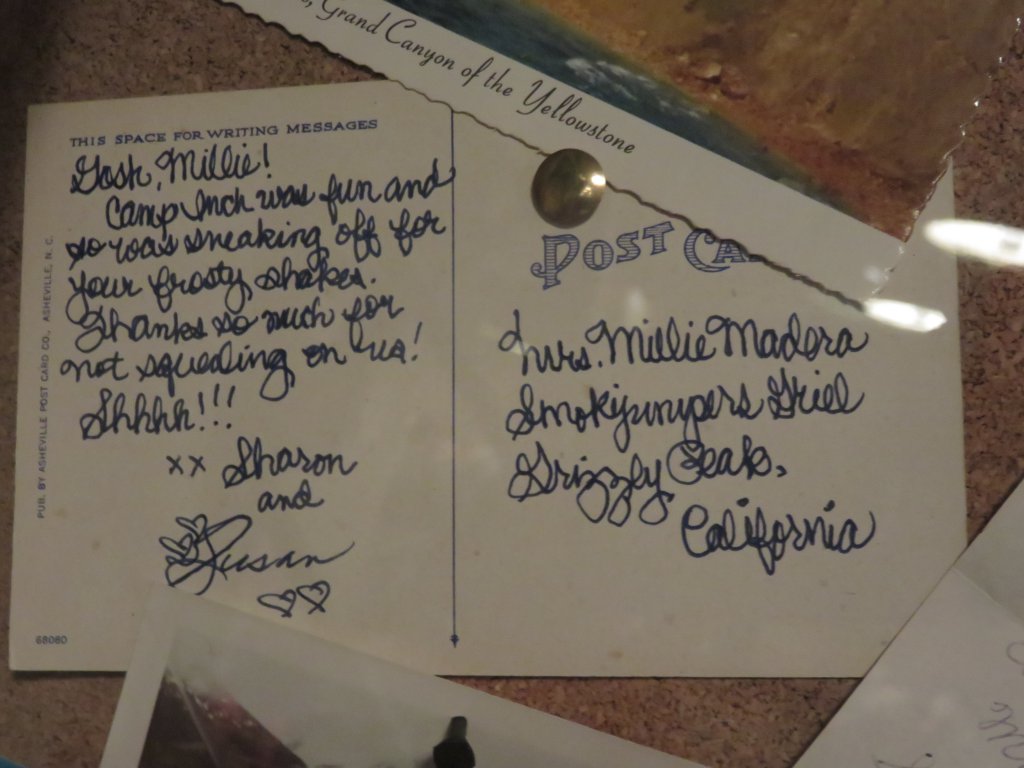 Grand Canyon of the Yellowstone
THIS SPACE FOR WRITING MESSAGES
Gosh, Millie!
Camp Inch was fun and
so was sneaking off for
your frosty shakes.
Thanks so much for
not squealing on us!
Shhhh!!!
xx Sharon
and
Susan
PUB. BY ASHEVILLE POST CARD CO., ASHEVILLE, N. C.
68080
POST CA
Mrs. Millie Madera
Smokejumpers Grill
Grizzly Peak,
California